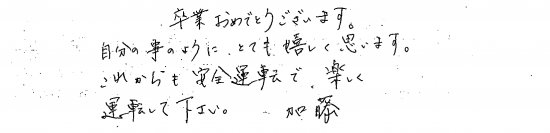 卒業おめでとうございます。
自分の事のように、とても嬉しく思います。
これからも安全運転で、楽しく
運転して下さい。 加藤